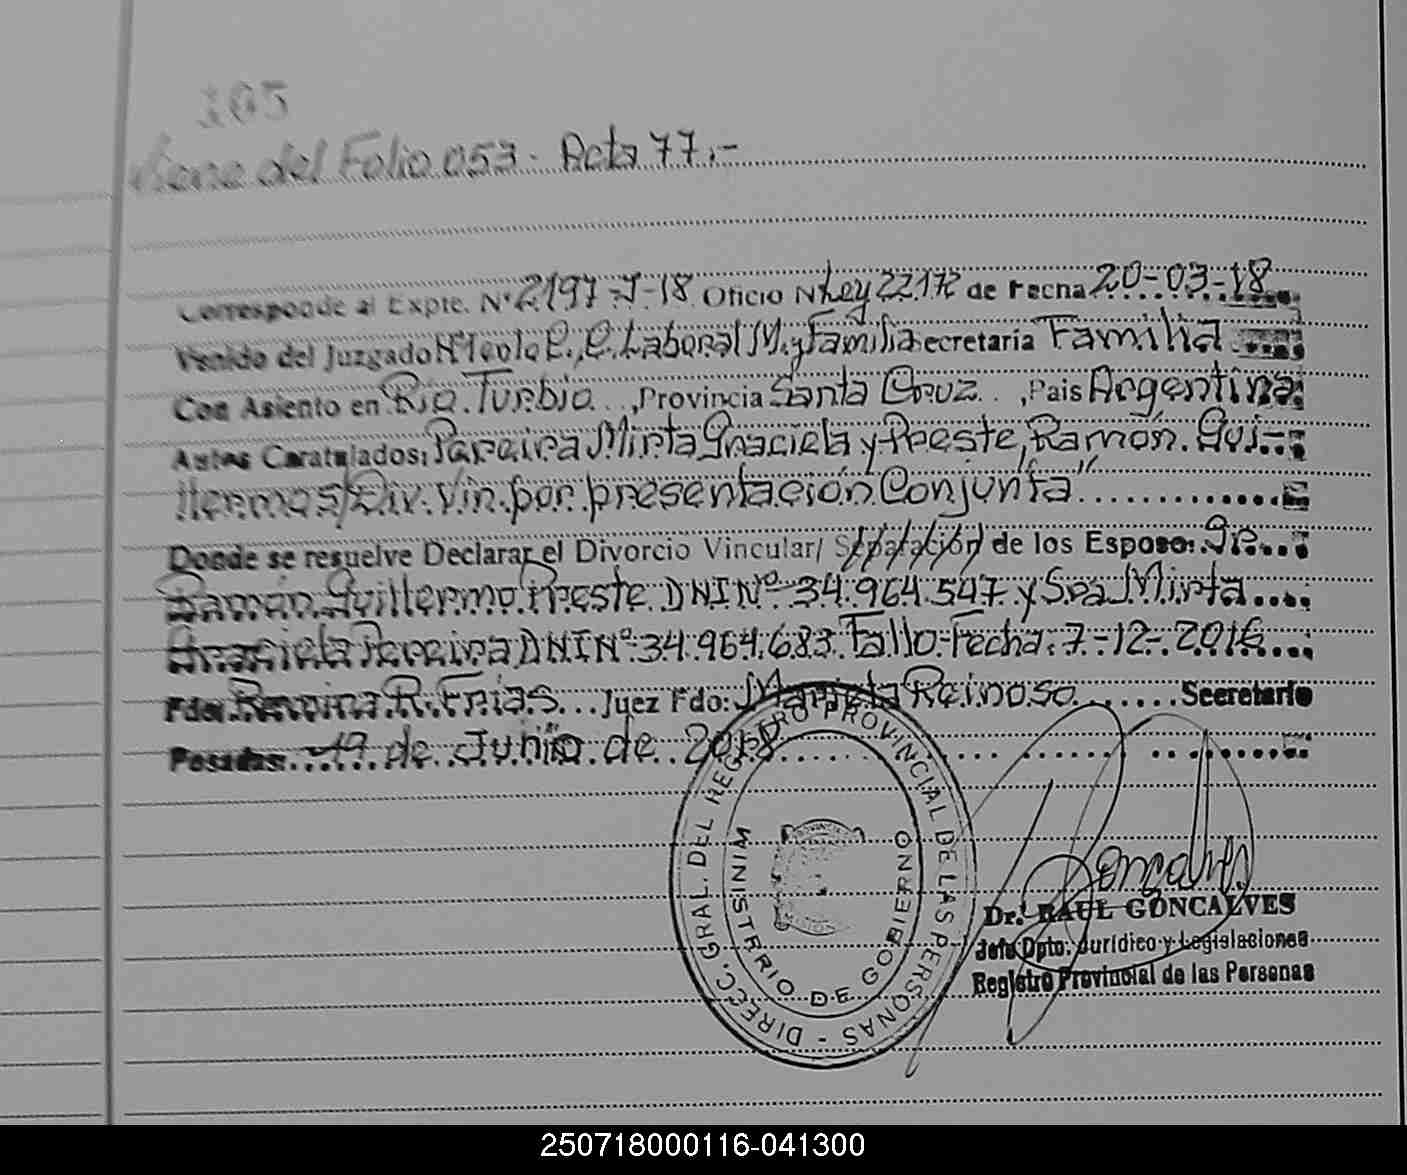 105
Viene del Folio 053. Acta 77.-
Corresponde al Expte. N° 2197-J-18 Oficio N° Ley 22172 de Fecha 20-03-18
Venido del Juzgado N° 1 C., C. Laboral M. y Familia Secretaria Familia
Con Asiento en Rio Turbio ,Provincia Santa Cruz ,Pais Argentina
Autos Caratulados: Pereira Mirta Graciela y Preste, Ramón Gui-
llermo s/Div. Vin. por presentación Conjunta"
Donde se resuelve Declarar el Divorcio Vincular/ Separación de los Esposos: Sr.
Ramón Guillermo Preste DNI N° 34.964.547 y Sra Mirta
Graciela Pereira DNI N° 34.964.683 Fallo-Fecha: 7-12-2016
Fdo: R. Frias Juez Fdo: Mariela Reinoso Secretario
Posadas: 19 de Junio de 2018
DIRECC. GRAL. DEL REGISTRO PROVINCIAL DE LAS PERSONAS -
MINISTERIO DE GOBIERNO
Goncalves
Dr. RAUL GONCALVES
Jefe Dpto. Jurídico y Legislaciones
Registro Provincial de las Personas
250718000116-041300